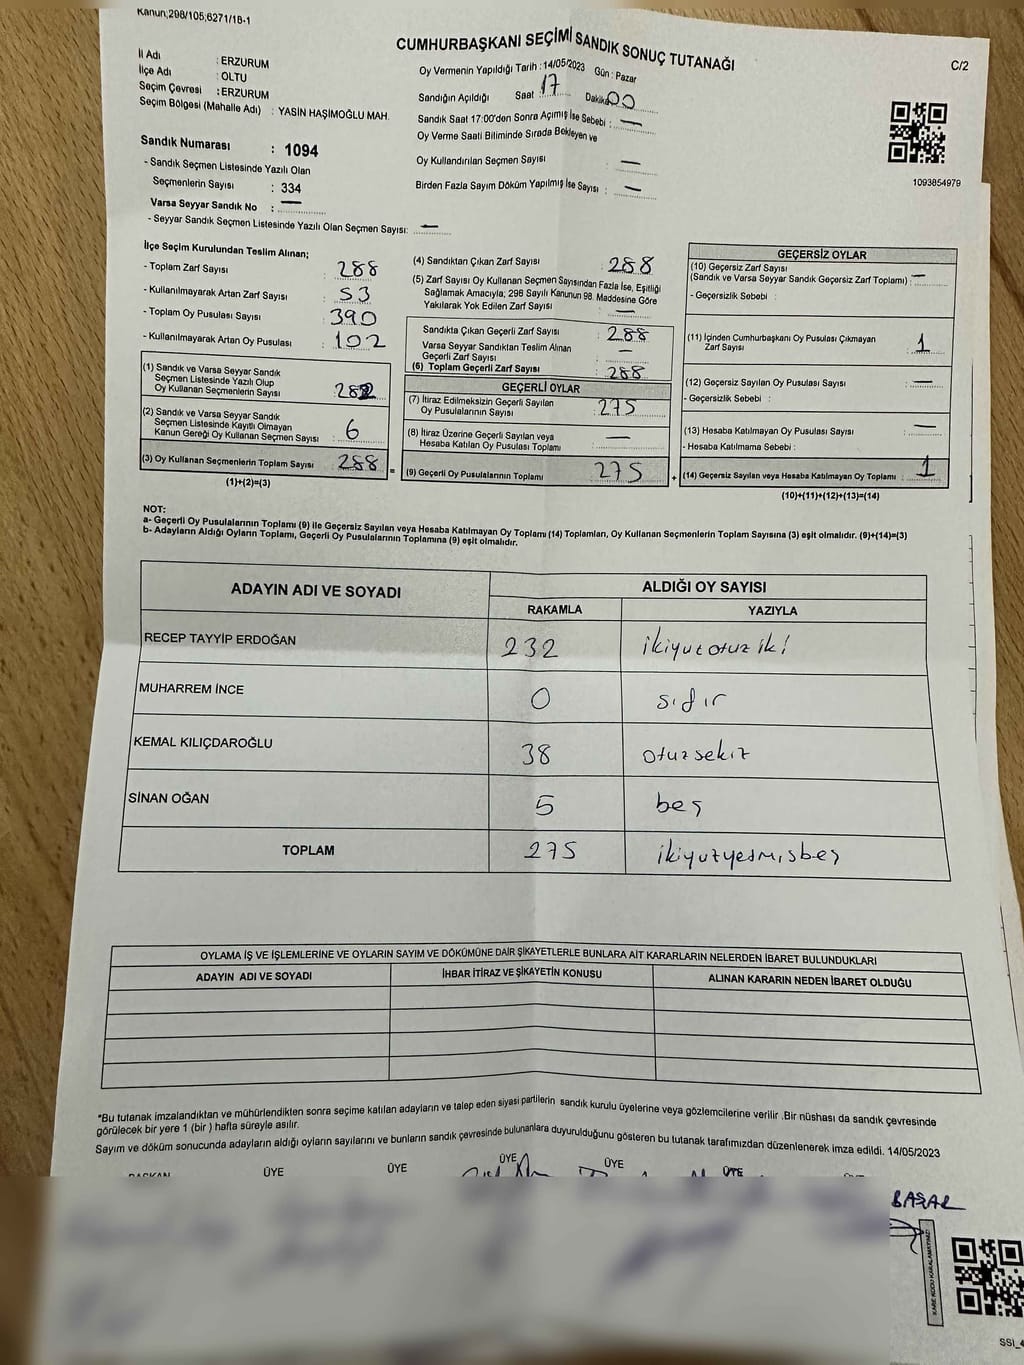 Kanun;298/105;6271/18-1
CUMHURBAŞKANI SEÇİMİ SANDIK SONUÇ TUTANAĞI
C/2
İl Adı : ERZURUM
İlçe Adı : OLTU
Seçim Çevresi : ERZURUM
Seçim Bölgesi (Mahalle Adı) : YASİN HAŞİMOĞLU MAH.
Sandık Numarası : 1094
- Sandık Seçmen Listesinde Yazılı Olan
Seçmenlerin Sayısı : 334
Varsa Seyyar Sandık No : —
- Seyyar Sandık Seçmen Listesinde Yazılı Olan Seçmen Sayısı: —
Oy Vermenin Yapıldığı Tarih : 14/05/2023 Gün : Pazar
Sandığın Açıldığı Saat : 17 Dakika 00
Sandık Saat 17:00'den Sonra Açımış İse Sebebi : —
Oy Verme Saati Biliminde Sırada Bekleyen ve
Oy Kullandırılan Seçmen Sayısı —
Birden Fazla Sayım Döküm Yapılmış İse Sayısı : —
1093854979
İlçe Seçim Kurulundan Teslim Alınan;
- Toplam Zarf Sayısı : 288
- Kullanılmayarak Artan Zarf Sayısı : 53
- Toplam Oy Pusulası Sayısı : 390
- Kullanılmayarak Artan Oy Pusulası : 102
(1) Sandık ve Varsa Seyyar Sandık
Seçmen Listesinde Yazılı Olup
Oy Kullanan Seçmenlerin Sayısı : 282
(2) Sandık ve Varsa Seyyar Sandık
Seçmen Listesinde Kayıtlı Olmayan
Kanun Gereği Oy Kullanan Seçmen Sayısı : 6
(3) Oy Kullanan Seçmenlerin Toplam Sayısı : 288
(1)+(2)=(3)
(4) Sandıktan Çıkan Zarf Sayısı : 288
(5) Zarf Sayısı Oy Kullanan Seçmen Sayısından Fazla İse, Eşitliği
Sağlamak Amacıyla; 298 Sayılı Kanunun 98. Maddesine Göre
Yakılarak Yok Edilen Zarf Sayısı : —
Sandıkta Çıkan Geçerli Zarf Sayısı : 288
Varsa Seyyar Sandıktan Teslim Alınan
Geçerli Zarf Sayısı : —
(6) Toplam Geçerli Zarf Sayısı : 288
GEÇERLİ OYLAR
(7) İtiraz Edilmeksizin Geçerli Sayılan
Oy Pusulalarının Sayısı : 275
(8) İtiraz Üzerine Geçerli Sayılan veya
Hesaba Katılan Oy Pusulası Toplamı : —
= (9) Geçerli Oy Pusulalarının Toplamı : 275
GEÇERSİZ OYLAR
(10) Geçersiz Zarf Sayısı
(Sandık ve Varsa Seyyar Sandık Geçersiz Zarf Toplamı) : —
- Geçersizlik Sebebi :
(11) İçinden Cumhurbaşkanı Oy Pusulası Çıkmayan
Zarf Sayısı : 1
(12) Geçersiz Sayılan Oy Pusulası Sayısı : —
- Geçersizlik Sebebi :
(13) Hesaba Katılmayan Oy Pusulası Sayısı : —
- Hesaba Katılmama Sebebi :
+ (14) Geçersiz Sayılan veya Hesaba Katılmayan Oy Toplamı : 1
(10)+(11)+(12)+(13)=(14)
NOT:
a- Geçerli Oy Pusulalarının Toplamı (9) ile Geçersiz Sayılan veya Hesaba Katılmayan Oy Toplamı (14) Toplamları, Oy Kullanan Seçmenlerin Toplam Sayısına (3) eşit olmalıdır. (9)+(14)=(3)
b- Adayların Aldığı Oyların Toplamı, Geçerli Oy Pusulalarının Toplamına (9) eşit olmalıdır.
ADAYIN ADI VE SOYADI ALDIĞI OY SAYISI
RAKAMLA YAZIYLA
RECEP TAYYİP ERDOĞAN 232 ikiyüzotuziki
MUHARREM İNCE 0 sıfır
KEMAL KILIÇDAROĞLU 38 otuzsekiz
SİNAN OĞAN 5 beş
TOPLAM 275 ikiyüzyetmişbeş
OYLAMA İŞ VE İŞLEMLERİNE VE OYLARIN SAYIM VE DÖKÜMÜNE DAİR ŞİKAYETLERLE BUNLARA AİT KARARLARIN NELERDEN İBARET BULUNDUKLARI
ADAYIN ADI VE SOYADI İHBAR İTİRAZ VE ŞİKAYETİN KONUSU ALINAN KARARIN NEDEN İBARET OLDUĞU
*Bu tutanak imzalandıktan ve mühürlendikten sonra seçime katılan adayların ve talep eden siyasi partilerin sandık kurulu üyelerine veya gözlemcilerine verilir .Bir nüshası da sandık çevresinde
görülecek bir yere 1 (bir ) hafta süreyle asılır.
Sayım ve döküm sonucunda adayların aldığı oyların sayılarını ve bunların sandık çevresinde bulunanlara duyurulduğunu gösteren bu tutanak tarafımızdan düzenlenerek imza edildi. 14/05/2023
BAŞKAN ÜYE ÜYE ÜYE ÜYE ÜYE
BAŞAR
KARE KODU KARALAMAYINIZ!
SSİ_4